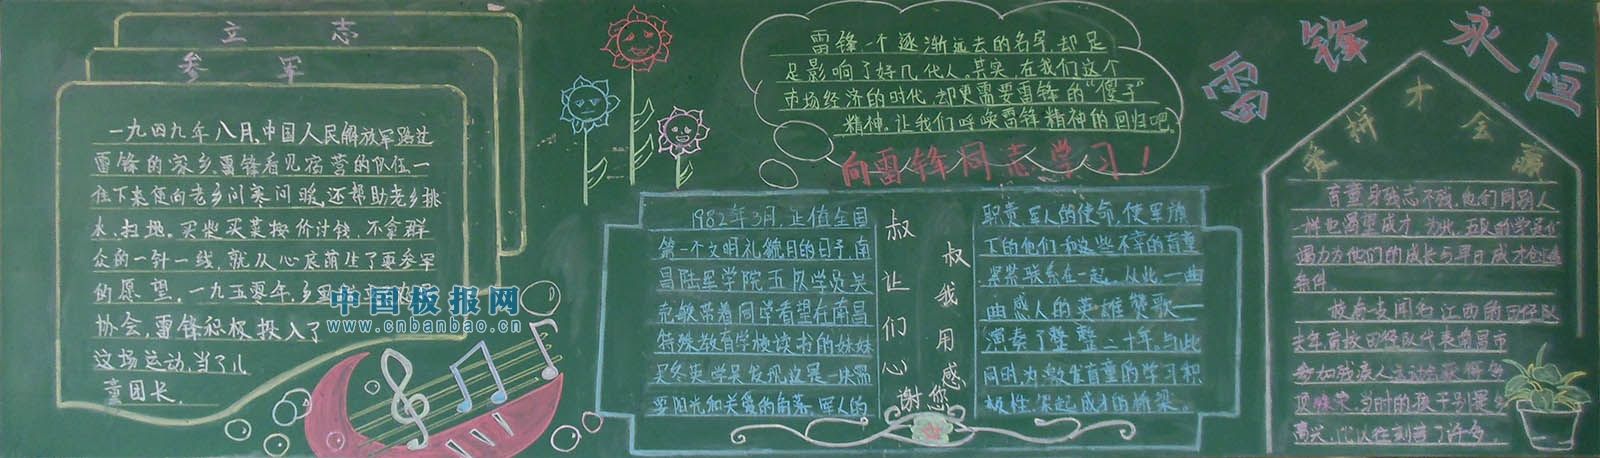 立志
参军
一九四九年八月,中国人民解放军路过
雷锋的家乡。雷锋看见宿营的队伍一
住下来便向老乡问寒问暖,还帮助老乡挑
水、扫地。买柴买菜按价计钱,不拿群
众的一针一线,就从心底萌生了要参军
的愿望。一九五零年,乡
协会,雷锋积极投入了
这场运动,当了儿
童团长。
中国板报网
www.cnbanbao.cn
雷锋一个逐渐远去的名字,却足
足影响了好几代人。其实,在我们这个
市场经济的时代,却更需要雷锋的“傻子”
精神。让我们呼唤雷锋精神的回归吧。
向雷锋同志学习!
1982年3月,正值全国
第一个文明礼貌月的日子,南
昌陆军学院五队学员吴
克敏带着同学看望在南昌
特殊教育学校读书的妹妹
吴冬英,学员发现这是一块需
要阳光和关爱的角落,军人的
叔叔让我们用心感谢您
职责,军人的使命,使军旗
下的他们和这些不幸的盲童
紧紧联系在一起。从此,一曲
曲感人的英雄赞歌一
演奏了整整二十年。与此
同时,为激发盲童的学习积
极性,架起成才的桥梁。
雷锋永恒
爱拼才会赢
盲童身残志不残,他们同别人
一样也渴望成才,为此,五队的学员们
竭力为他们的成长与早日成才创造
条件。
校有支闻名江西的田径队
去年盲校田径队代表南昌市
参加残疾人运动会
当时的孩子别提多
高兴,